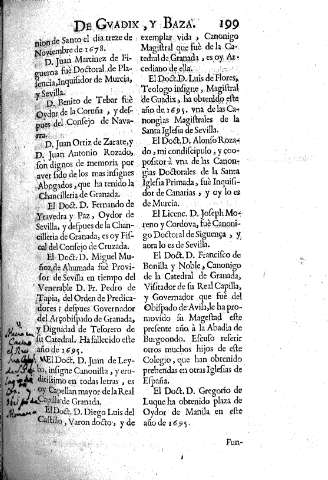 DE GVADIX, Y BAZA. 199
nion de Santo el dia treze de
Noviembre de 1678.
D. Juan Martinez de Fi-
gueroa fuè Doctoral de Pla-
sencia, Inquisidor de Murcia,
y Sevilla.
D. Benito de Tebar fuè
Oydor de la Coruña, y des-
pues del Consejo de Nava-
rra.
D. Juan Ortiz de Zarate, y
D. Juan Antonio Rozado,
son dignos de memoria, por
aver sido de los mas insignes
Abogados, que ha tenido la
Chancilleria de Granada.
El Doct. D. Fernando de
Yravedra y Paz, Oydor de
Sevilla, y despues de la Chan-
cilleria de Granada, es oy Fis-
cal del Consejo de Cruzada.
El Doct. D. Miguel Mu-
ñoz de Ahumada fuè Provi-
sor de Sevilla en tiempo del
Venerable D. Fr. Pedro de
Tapia, del Orden de Predica-
dores: despues Governador
del Arçobispado de Granada,
y Dignidad de Tesorero de
su Catedral. Ha fallecido este
año de 1695.
El Doct. D. Juan de Ley-
ba, insigne Canonista, y eru-
ditissimo en todas letras, es
oy Capellan mayor de la Real
Capilla de Granada.
El Doct. D. Diego Luis del
Castillo, Varon docto, y de
exemplar vida, Canonigo
Magistral que fuè de la Ca-
tedral de Granada, es oy Ar-
cediano de ella.
El Doct. D. Luis de Flores,
Teologo insigne, Magistral
de Guadix, ha obtenido este
año de 1695. vna de las Ca-
nongias Magistrales de la
Santa Iglesia de Sevilla.
El Doct. D. Alonso Roza-
do, mi condiscipulo, y coo-
positor à vna de las Canon-
gias Doctorales de la Santa
Iglesia Primada, fuè Inquisi-
dor de Canarias, y oy lo es
de Murcia.
El Licenc. D. Joseph Mo-
reno y Cordova, fuè Canoni-
go Doctoral de Siguença, y
aora lo es de Sevilla.
El Doct. D. Francisco de
Benilla y Noble, Canonigo
de la Catedral de Granada,
Visitador de su Real Capilla,
y Governador que fuè del
Obispado de Avila, le ha pro-
movido su Magestad este
presente año à la Abadia de
Burgondo. Escuso referir
otros muchos hijos de este
Colegio, que han obtenido
prebendas en otras Iglesias de
España.
El Doct. D. Gregorio de
Luque ha obtenido plaza de
Oydor de Manila en este
año de 1695.
Fun-